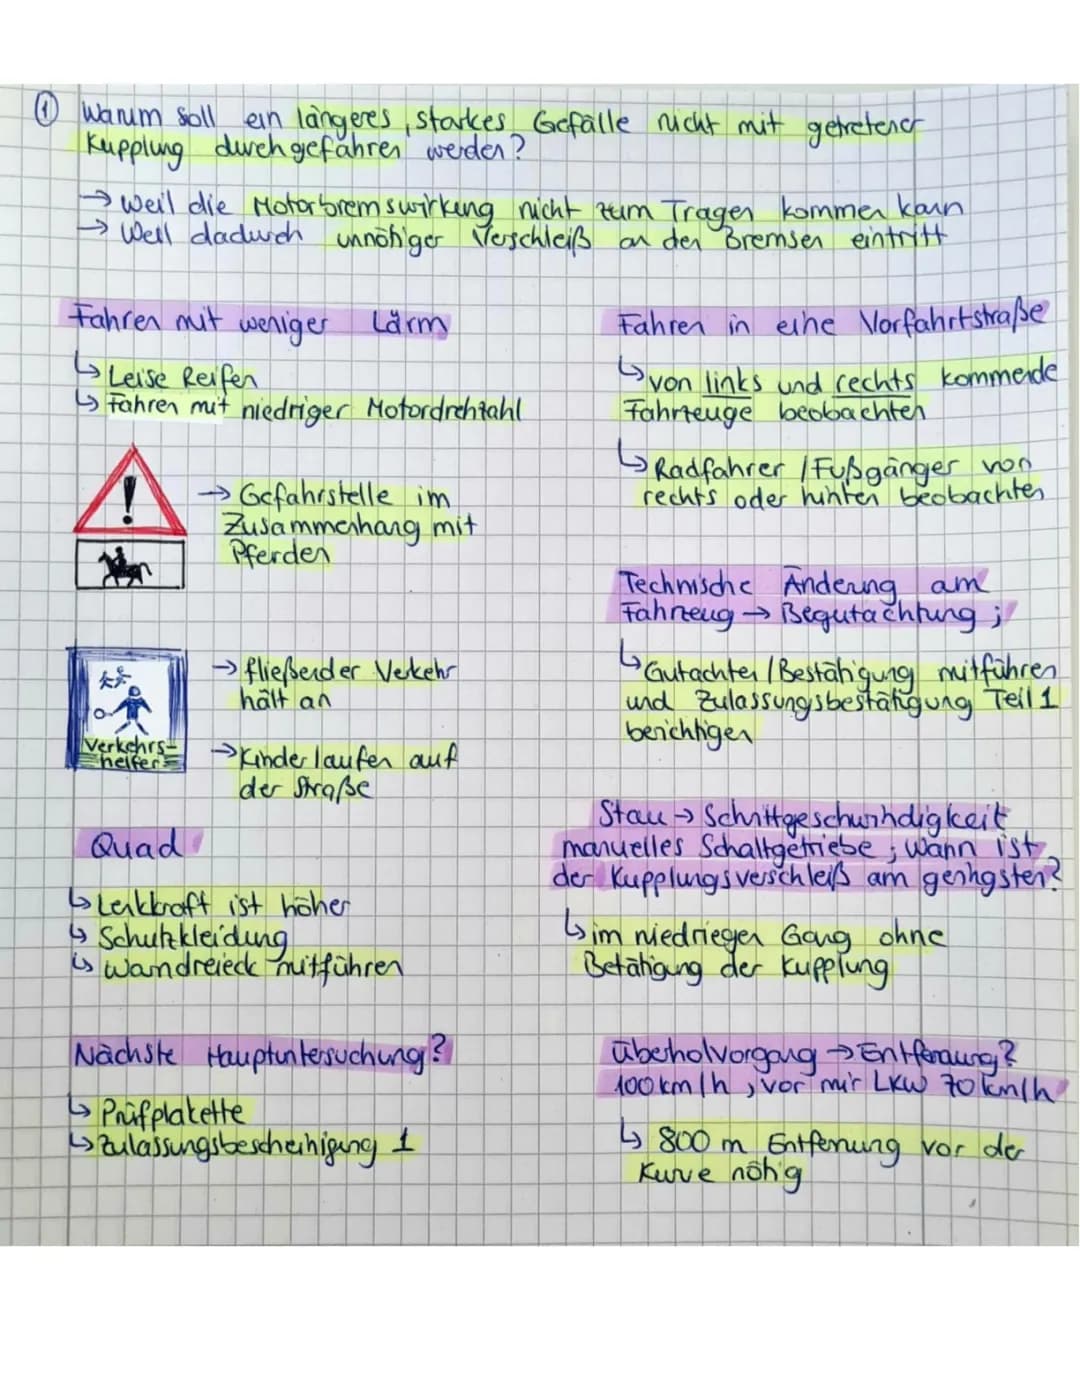 ① Warum soll ein längeres, starkes Gefälle nicht mit getretener
Kupplung durchgefahren werden?
→ Weil die Motorbremswirkung nicht zum Tragen kommen kann
→ Weil dadurch unnötiger Verschleiß an den Bremsen eintritt
Fahren mit weniger Lärm
↳ Leise Reifen
↳ Fahren mit niedriger Motordrehzahl
! → Gefahrstelle im
Zusammenhang mit
Pferden
→ fließender Verkehr
hält an
Verkehrs-
helfer
→ Kinder laufen auf
der Straße
Quad
↳ Lenkkraft ist höher
↳ Schutzkleidung
↳ Warndreieck mitführen
Nächste Hauptuntersuchung?
↳ Prüfplakette
↳ Zulassungsbescheinigung 1
Fahren in eine Vorfahrtstraße
↳ von links und rechts kommende
Fahrzeuge beobachten
↳ Radfahrer / Fußgänger von
rechts oder hinten beobachten
Technische Änderung am
Fahrzeug → Begutachtung ;
↳ Gutachten / Bestätigung mitführen
und Zulassungsbestätigung Teil 1
berichtigen
Stau → Schrittgeschwindigkeit
manuelles Schaltgetriebe ; wann ist
der Kupplungsverschleiß am geringsten?
↳ im niedriegen Gang ohne
Betätigung der Kupplung
Überholvorgang → Entfernung?
100 km/h , vor mir LKW 70 km/h
↳ 800 m Entfernung vor der
Kurve nötig